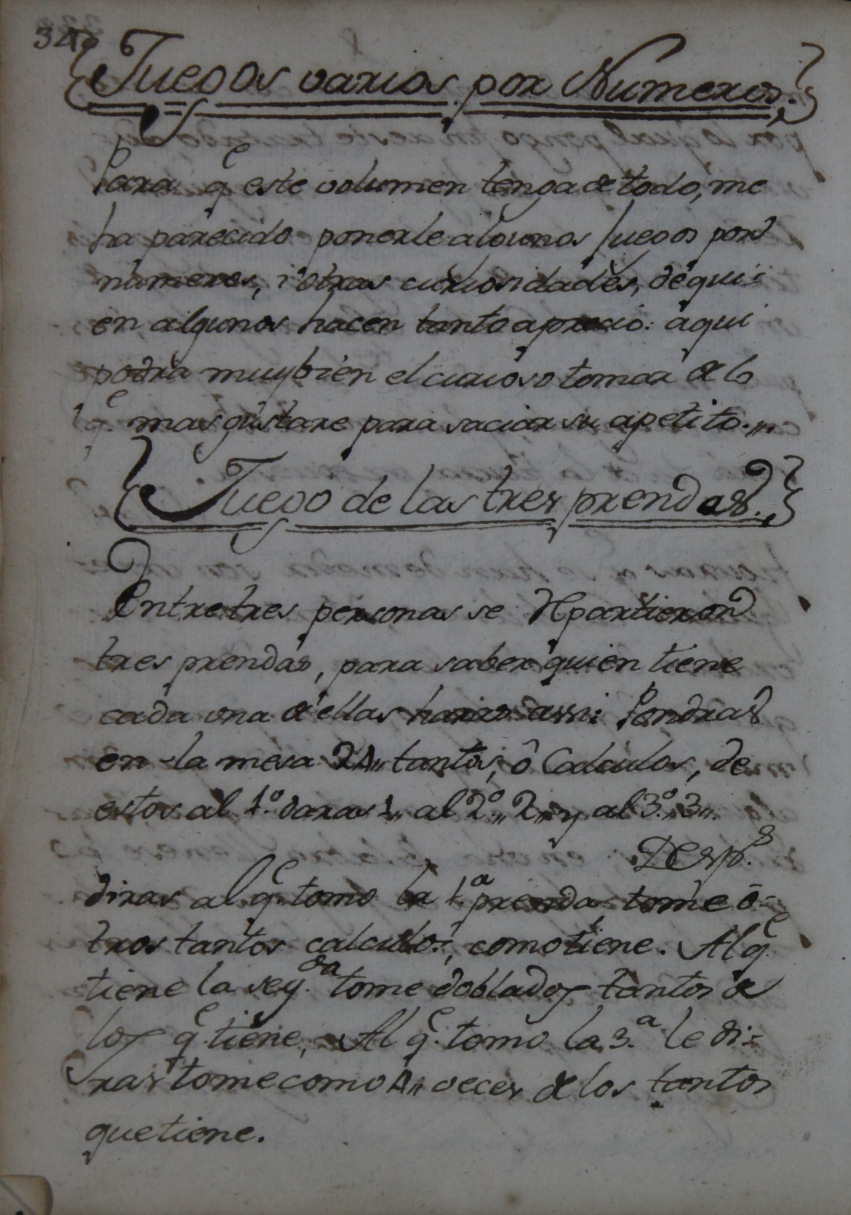 Juegos varios por Numeros,
Para q.e este volumen tenga de todo, me
ha parecido ponerle algunos Juegos por
numeros, i otras curiosidades, de qui=
en algunos hacen tanto aprecio: aqui
podra muy bien el curioso tomar de lo
q.e mas gustare para saciar su apetito.,,
Juego de las tres prendas.,
Entre tres personas se Repartieron
tres prendas, para saber quien tiene
cada una de ellas assi: Pondras
en la mesa 24,, tantos, ô Calculos, de
estos al 1.º daras 1,, al 2.º,, 2,, y al 3.º,, 3,,.
Desp.s
diras al q.e tomo la 1.a prenda tome o=
tros tantos calculos, como tiene. Al q.e
tiene la seg.da tome doblados tantos de
los q.e tiene, Al q.e tomo la 3.a le di=
ras tome como 4,, veces de los tantos
que tiene.